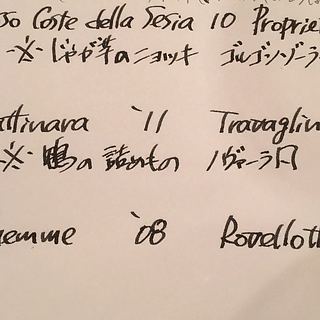 so Coste della Sesia 10 Proprie
※ じゃが芋のニョッキ ゴルゴンゾーラ
ttinara '11 Travaglin
※ 鴨の詰めもの ノヴァーラ風
emme '08 Rovellott